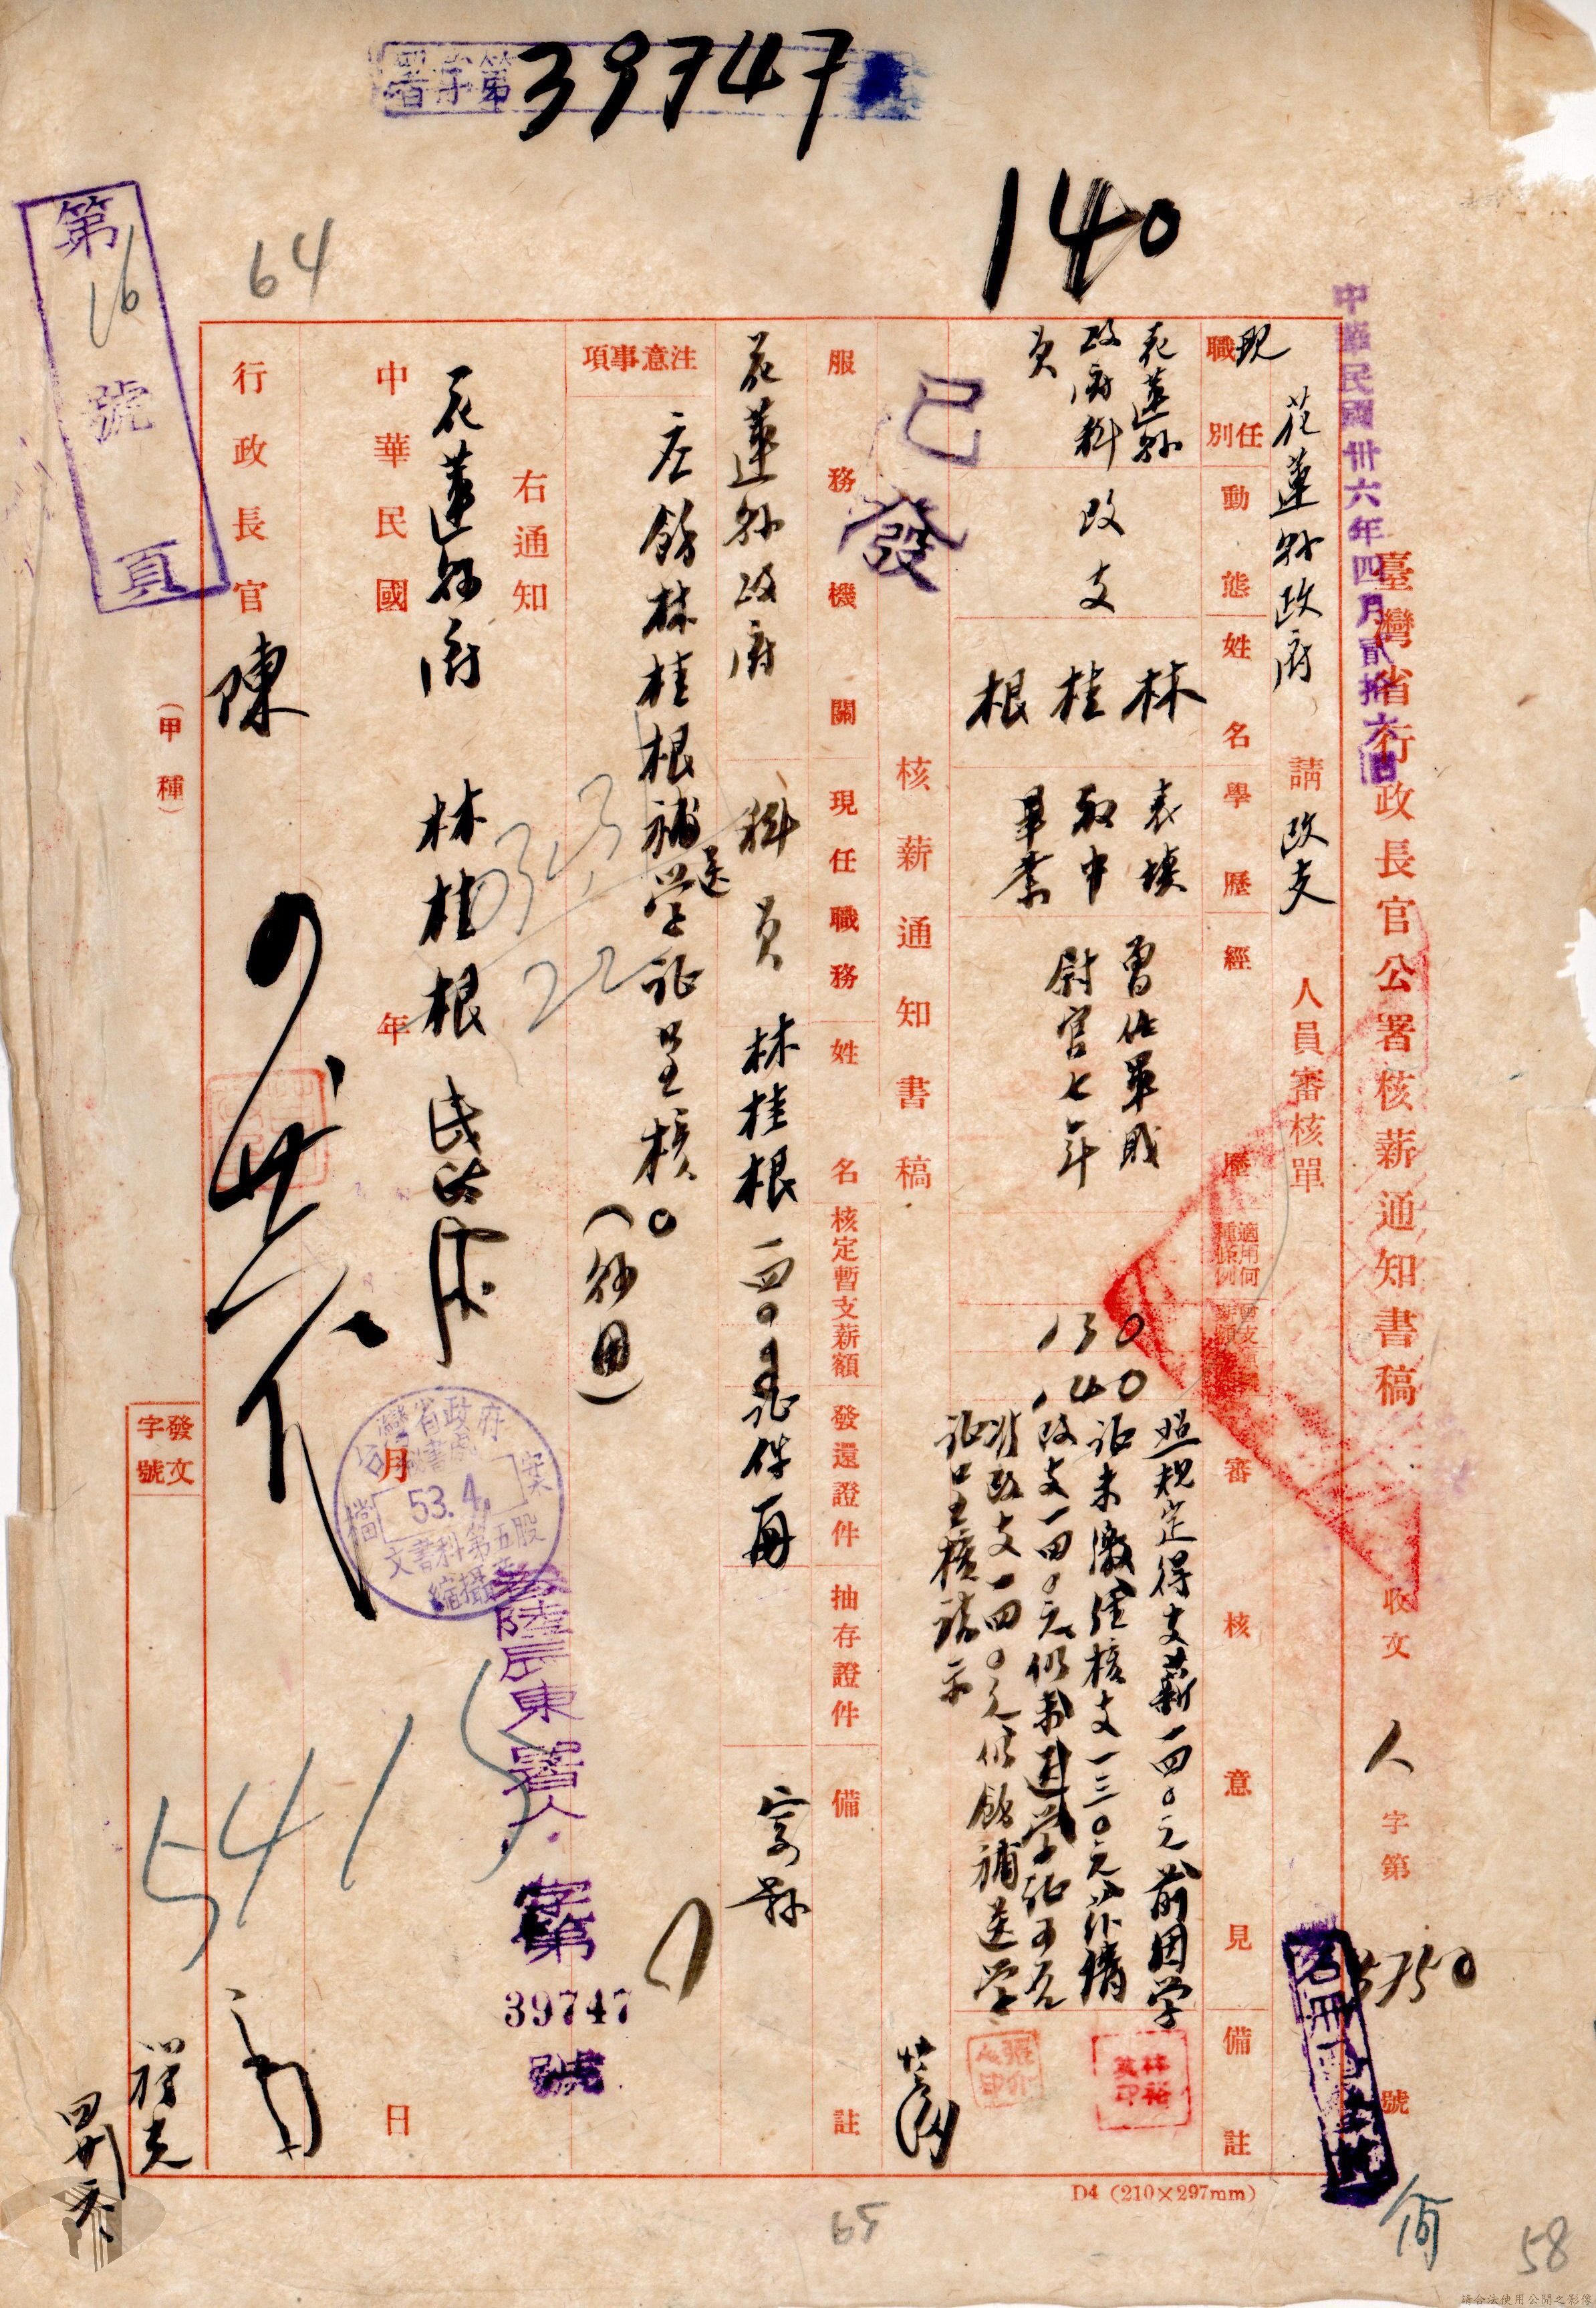 署字第39747號
140
64
第16號頁
中華民國卅六年四月貳拾六日
臺灣省行政長官公署核薪通知書稿
收文 人字第 5750 號
花蓮縣政府 請 改支 人員審核單
現職別
任動態
姓名
學歷
經歷
適用何種條例
審核意見
備註
花蓮縣政府科員
改支
林桂根
表填初中畢業
曾任軍職尉官七年
130
140
照規定得支薪一四〇元前因学
证未繳經核支一三〇元茲請
改支一四〇元仍未送学证可否
准改支一四〇元仍飭補送学
证口呈核請示
林裕英印
已發
核薪通知書稿
服務機關
現任職務
姓名
核定暫支薪額
發還證件
抽存證件
備註
花蓮縣政府
科員
林桂根
一四〇
证件再
寄縣
注意事項
应飭林桂根補送学证呈核。
右通知
花蓮縣府 林桂根
中華民國 年 月 日
行政長官 陳
(甲種)
發文字號
台灣省政府秘書處
檔案
53.4.
文書科第五股
縮攝章
參陸辰東署人字第
39747
號
5415
D4 (210×297mm)
65
58
請合法使用公開之影像